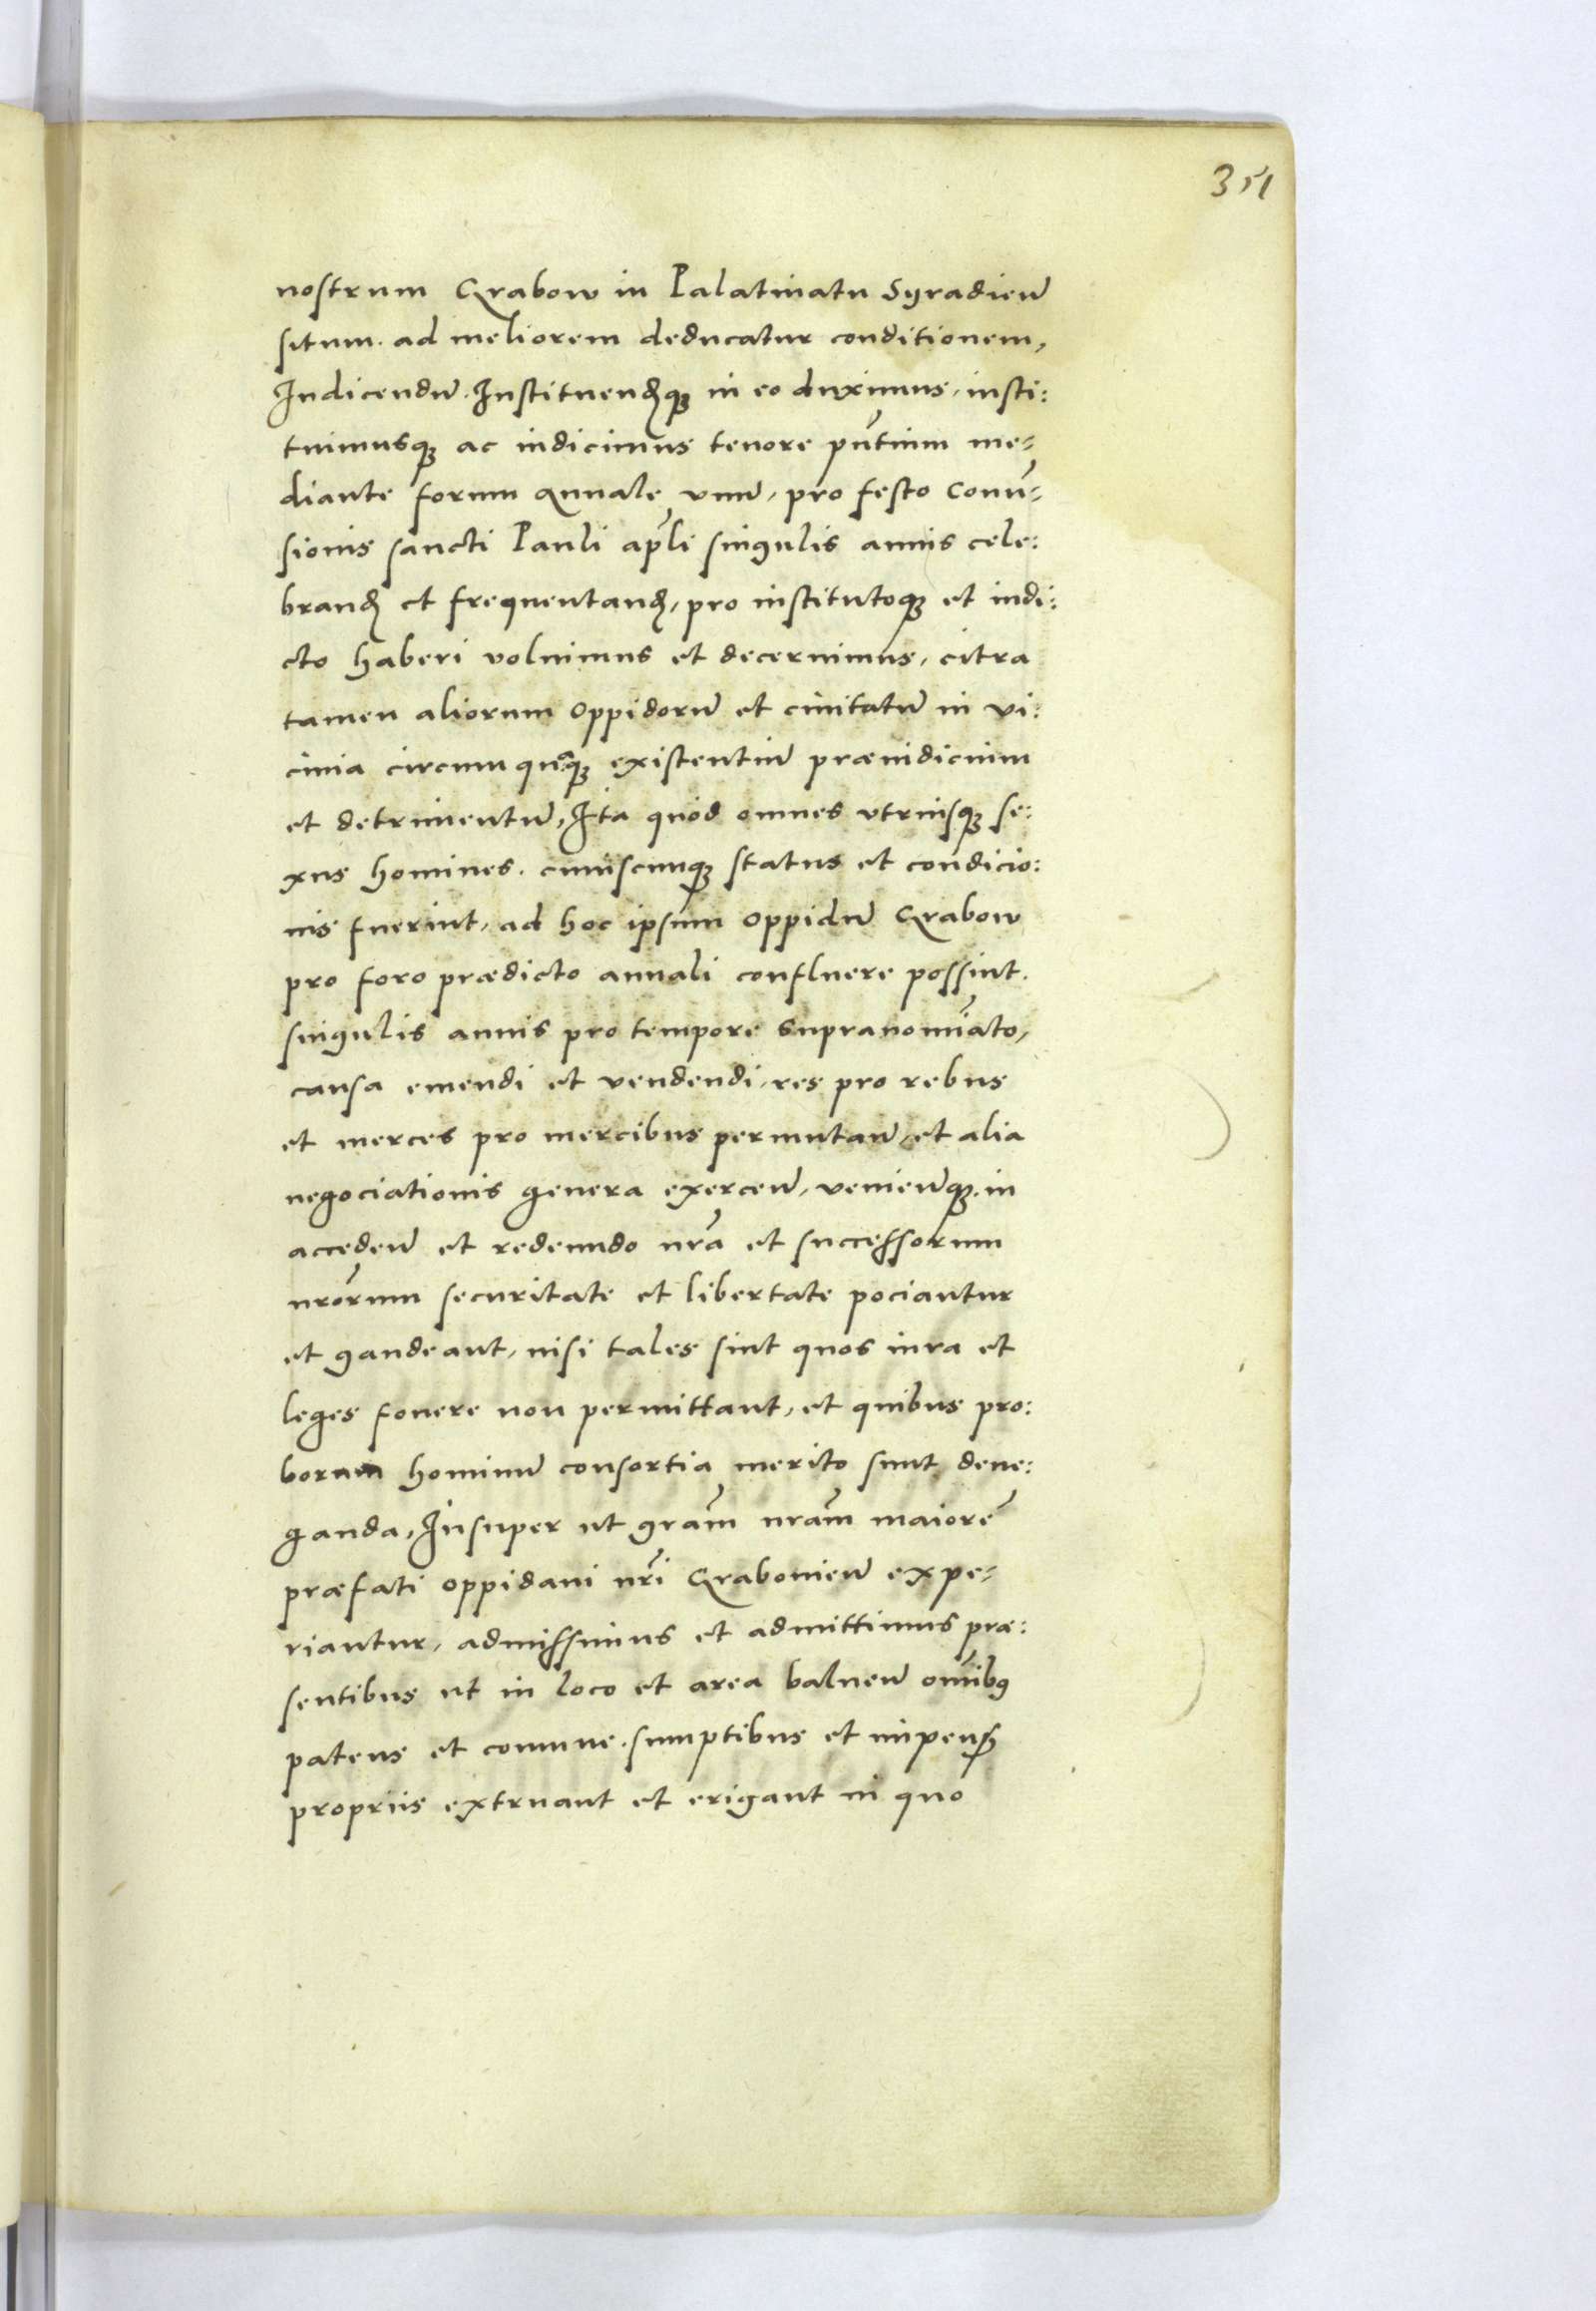 351
nostrum Grabow in Palatinatu Syradien̄
situm. ad meliorem deducatur conditionem,
Indicendū. Instituendꝭqꝫ in eo duximus, insti:
tuimusqꝫ ac indicimus tenore pn̄tium me-
diante forum annale vnū, pro festo Conu̅-
sionis sancti Pauli apl̄i singulis annis cele:
brandꝭ et frequentandꝭ, pro institutoqꝫ et indi:
cto haberi volnimus et decernimus, citra
tamen aliorum oppidorū et ciuitatū in vi:
cinia circumquaqꝫ existentiū præiudicium
et detrimentū, Ita quod omnes vtriusqꝫ se:
xus homines. cuiuscunqꝫ status et condicio:
nis fuerint, ad hoc ipsum oppidū Grabow
pro foro prædicto annali confluere possint.
singulis annis pro tempore supranomīato,
causa emendi et vendendi, res pro rebus
et merces pro mercibus permutan̄, et alia
negociationis genera exercen̄, venien̄qꝫ. in
acceden̄ et redeundo nr̄a et successorum
nr̄orum securitate et libertate pociantur
et gaudeant, nisi tales sint quos iura et
leges fouere non permittant, et quibus pro:
borum hominū consortia merito sunt dene:
ganda, Insuper ut grām nr̄am maiorē
præfati oppidani nr̄i Grabouien̄ expe-
riantur, admissimus et admittimus præ:
sentibus ut in loco et area balneū omībꝰ
patens et comune. sumptibus et impensꝭ
propriis extruant et erigant in quo